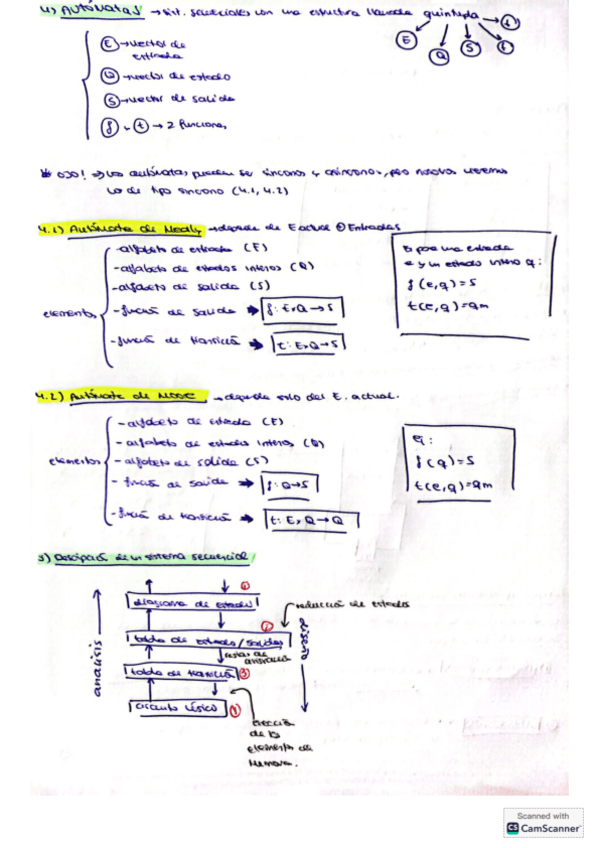 4) Autómatas → sist. secuenciales con una estructura llamada quíntupla → t
E Q S f
E → vector de entrada
Q → vector de estado
S → vector de salida
f y t → 2 funciones
* OJO! ⇒ los autómatas pueden ser síncronos y asíncronos, pero nosotros veremos
los de tipo síncrono (4.1, 4.2)
4.1) Autómata de Mealy → depende de E actual ⊕ Entradas
elementos
- alfabeto de entrada (E)
- alfabeto de estados internos (Q)
- alfabeto de salida (S)
- función de salida → f: E×Q → S
- función de transición → t: E×Q → S
para una entrada
e y un estado interno q:
f(e,q)=S
t(e,q)=qm
4.2) Autómata de Moore → depende solo del E. actual.
elementos
- alfabeto de estado (E)
- alfabeto de estados internos (Q)
- alfabeto de salida (S)
- función de salida → f: Q→S
- función de transición → t: E×Q → Q
f(q)=S
t(e,q)=qm
5) Descripción de un sistema secuencial
análisis
diagrama de estado
tabla de estados/salidas
reducción de estados
diseño
tabla de transición
3
circuito lógico
elección
de los
elementos de
memoria.
Scanned with
CS CamScanner